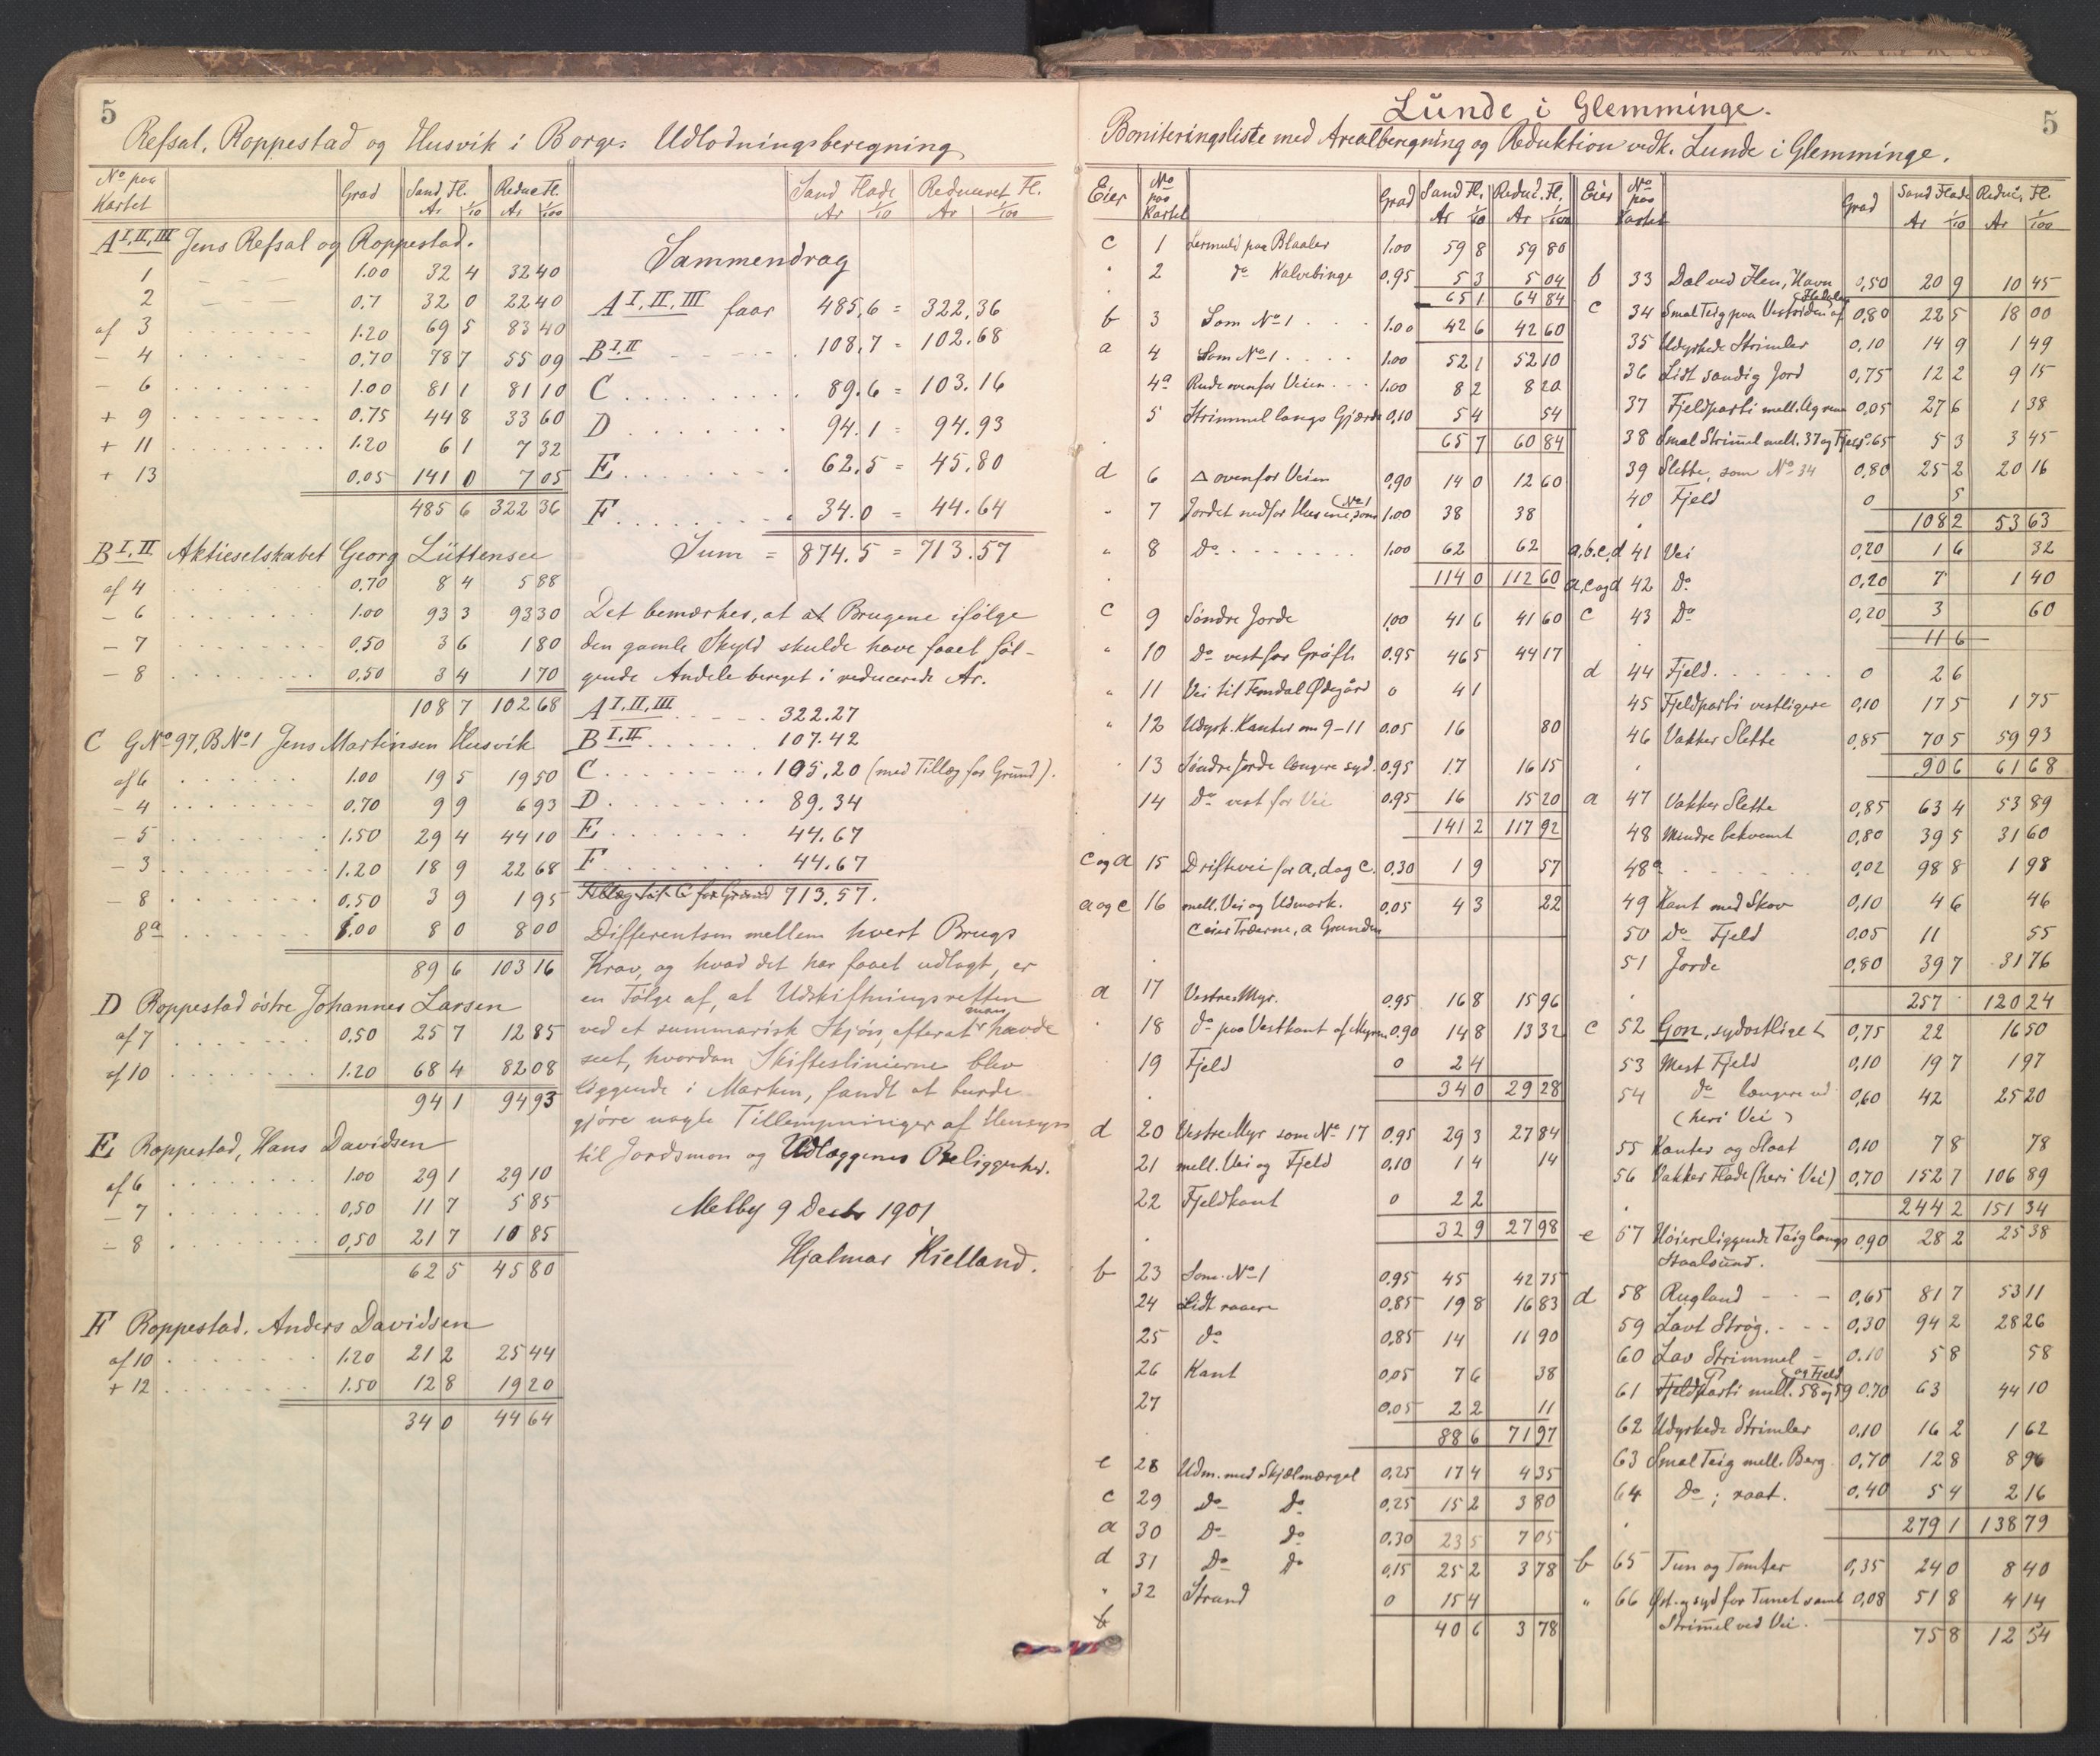 5
Refsal, Roppestad og Husvik i Borge. Udlodningsberegning
No paa Kartet Grad Sand Fl. Ar 1/10 Reduc. Fl. Ar 1/100
A I, II, III Jens Refsal og Roppestad.
1 1.00 32 4 32 40
2 0.7 32 0 22 40
af 3 1.20 69 5 83 40
– 4 0.70 78 7 55 09
– 6 1.00 81 1 81 10
+ 9 0.75 44 8 33 60
+ 11 1.20 6 1 7 32
+ 13 0.05 141 0 7 05
485 6 322 36
B I, II Aktieselskabet Georg Lüttensee
af 4 0.70 8 4 5 88
– 6 1.00 93 3 93 30
– 7 0,50 3 6 1 80
– 8 0,50 3 4 1 70
108 7 102 68
C G No 97, B No 1 Jens Martinsen Husvik
af 6 1.00 19 5 19 50
– 4 0,70 9 9 6 93
– 5 1.50 29 4 44 10
– 3 1.20 18 9 22 68
– 8 0,50 3 9 1 95
8a 1.00 8 0 8 00
89 6 103 16
D Roppestad østre Johannes Larsen
af 7 0,50 25 7 12 85
af 10 1.20 68 4 82 08
94 1 94 93
E Roppestad, Hans Davidsen
af 6 1.00 29 1 29 10
– 7 0,50 11 7 5 85
– 8 0,50 21 7 10 85
62 5 45 80
F Roppestad. Anders Davidsen
af 10 1.20 21 2 25 44
+ 12 1.50 12 8 19 20
34 0 44 64
Sand Flade Ar 1/10 Reduceret Fl. Ar 1/100
Sammendrag
A I, II, III faar 485,6 = 322,36
B I, II 108,7 = 102.68
C 89.6 = 103.16
D 94.1 = 94.93
E 62,5 = 45.80
F 34.0 = 44.64
Sum = 874.5 = 713.57
Det bemærkes, at at Brugene ifølge
den gamle Skyld skulde have faaet føl-
gende Andele bereget i reducerede Ar.
A I, II, III 322.27
B I, II 107.42
C 105,20 (med Tillæg for Grund).
D 89.34
E 44.67
F 44.67
Tillæg til C for Grund 713,57.
Differentsen mellem hvert Brugs
Krav, og hvad det har faaet udlagt, er
en Følge af, at Udskiftningsretten
ved et summarisk Skjøn, efterat man havde
seet, hvordan Skifteslinierne blev
liggende i Marken, fandt at burde
gjøre nogle Tillempninger af Hensyn
til Jordsmon og Udlæggenes Beliggenhed.
Melby 9 Decbr 1901
Hjalmar Kielland.
5
Lunde i Glemminge.
Boniteringsliste med Arealberegning og Reduktion vedk. Lunde i Glemminge.
Eier No paa Kartet Grad Sand Fl. Ar 1/10 Reduc. Fl. Ar 1/100
c 1 Lermuld paa Blaaler 1.00 59 8 59 80
" 2 do Kalvebinge 0.95 5 3 5 04
65 1 64 84
b 3 Som No 1 1.00 42 6 42 60
a 4 Som No 1 1.00 52 1 52 10
4a Rude ovenfor Veien 1.00 8 2 8 20
5 Strimmel langs Gjærde 0,10 5 4 54
65 7 60 84
d 6 △ ovenfor Veien 0,90 14 0 12 60
" 7 Jordet nedfor Husene, som (No 1 1.00 38 38
" 8 Do 1.00 62 62
114 0 112 60
c 9 Søndre Jorde 1,00 41 6 41 60
" 10 Do vest for Grøft 0.95 46 5 44 17
" 11 Vei til Femdal Ødegård 0 4 1
" 12 Udyrk. Kanter om 9–11 0.05 16 80
" 13 Søndre Jorde længere syd. 0.95 17 16 15
14 Do vest for Vei 0.95 16 15 20
141 2 117 92
c og a 15 Driftevei for a, d og c. 0.30 1 9 57
a og c 16 mell. Vei og Udmark. 0,05 4 3 22
c eier Træerne, a Grunden
a 17 Vestre Myr. 0.95 16 8 15 96
18 do paa Vestkant af Myren 0.90 14 8 13 32
19 Fjeld 0 2 4
34 0 29 28
d 20 Vestre Myr som No 17 0,95 29 3 27 84
21 mell. Vei og Fjeld 0,10 1 4 14
22 Fjeldkant 0 2 2
32 9 27 98
b 23 Som No 1 0.95 45 42 75
24 Lidt raaere 0.85 19 8 16 83
25 do 0,85 14 11 90
26 Kant 0,05 7 6 38
27 0.05 2 2 11
88 6 71 97
e 28 Udm. med Skjælmærgel 0,25 17 4 4 35
c 29 Do Do 0,25 15 2 3 80
a 30 Do Do 0.30 23 5 7 05
d 31 Do Do 0,15 25 2 3 78
" 32 Strand 0 15 4
40 6 3 78
Eier No paa Kartet Grad Sand Flade Ar 1/10 Reduc. Fl. Ar 1/100
b 33 Dal ved Havn 0,50 20 9 10 45
c 34 Smal Teig paa Vestsiden af 0,80 22 5 18 00
35 Udyrkede Strimler 0,10 14 9 1 49
36 Lidt sandig Jord 0,75 12 2 9 15
37 Fjeldparti mell. Agrene 0,05 27 6 1 38
38 Smal Strimel mell. 37 og Fjeld 0.65 5 3 3 45
39 Slette, som No 34 0,80 25 2 20 16
40 Fjeld 0 5
108 2 53 63
a.b.c.d 41 Vei 0,20 1 6 32
a, c og d 42 Do 0,20 7 1 40
c 43 Do 0,20 3 60
11 6
d 44 Fjeld 0 2 6
45 Fjeldparti vestligere 0,10 17 5 1 75
46 Vakker Slette 0,85 70 5 59 93
90 6 61 68
a 47 Vakker Slette 0,85 63 4 53 89
48 Mindre bekvemt 0,80 39 5 31 60
48a 0,02 98 8 1 98
49 Kant med Skov 0,10 4 6 46
50 Do Fjeld 0.05 11 55
51 Jorde 0,80 39 7 31 76
257 120 24
c 52 Gon, sydostligst 0,75 22 16 50
53 Mest Fjeld 0,10 19 7 1 97
54 do længere ud 0,60 42 25 20
(heri Vei)
55 Kanter og Skaat 0,10 7 8 78
56 Vakker Flade (heri Vei) 0,70 152 7 106 89
244 2 151 34
e 57 Høiereliggende Teig langs 0,90 28 2 25 38
Skaalsund.
d 58 Rugland 0,65 81 7 53 11
59 Lavt Strøg. 0,30 94 2 28 26
60 Lav Strimmel 0.10 5 8 58
og Fjeld
61 Fjeldparti mell. 58 og 59 0.70 63 44 10
62 Udyrkede Strimler 0.10 16 2 1 62
63 Smal Teig mell. Berg 0,70 12 8 8 96
64 do; raat. 0.40 5 4 2 16
279 1 138 79
b 65 Tun og Tomter 0,35 24 0 8 40
" 66 Øst. og syd for Tunet samt 0,08 51 8 4 14
Strimel ved Vei.
75 8 12 54